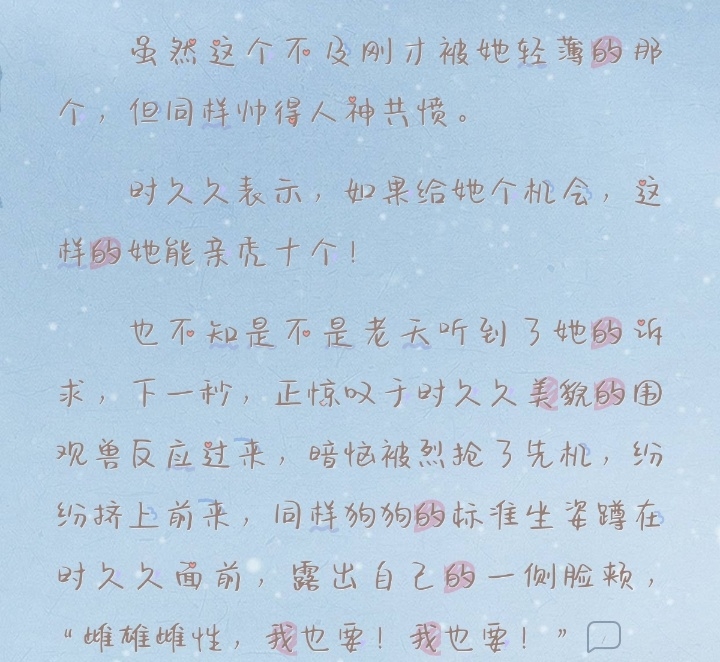 虽然这个不及刚才被她轻薄的那
个，但同样帅得人神共愤。
时久久表示，如果给她个机会，这
样的她能亲秃十个！
也不知是不是老天听到了她的诉
求，下一秒，正惊叹于时久久美貌的围
观兽反应过来，暗恼被烈抢了先机，纷
纷挤上前来，同样狗狗的标准坐姿蹲在
时久久面前，露出自己的一侧脸颊，
“雌雄雌性，我也要！我也要！”